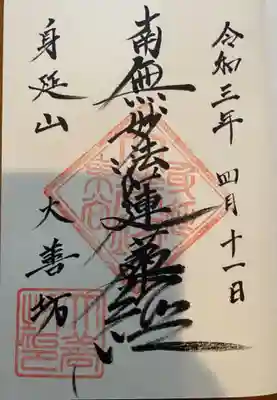 令和三年 四月十一日
南無妙法蓮華経
身延山 大善坊